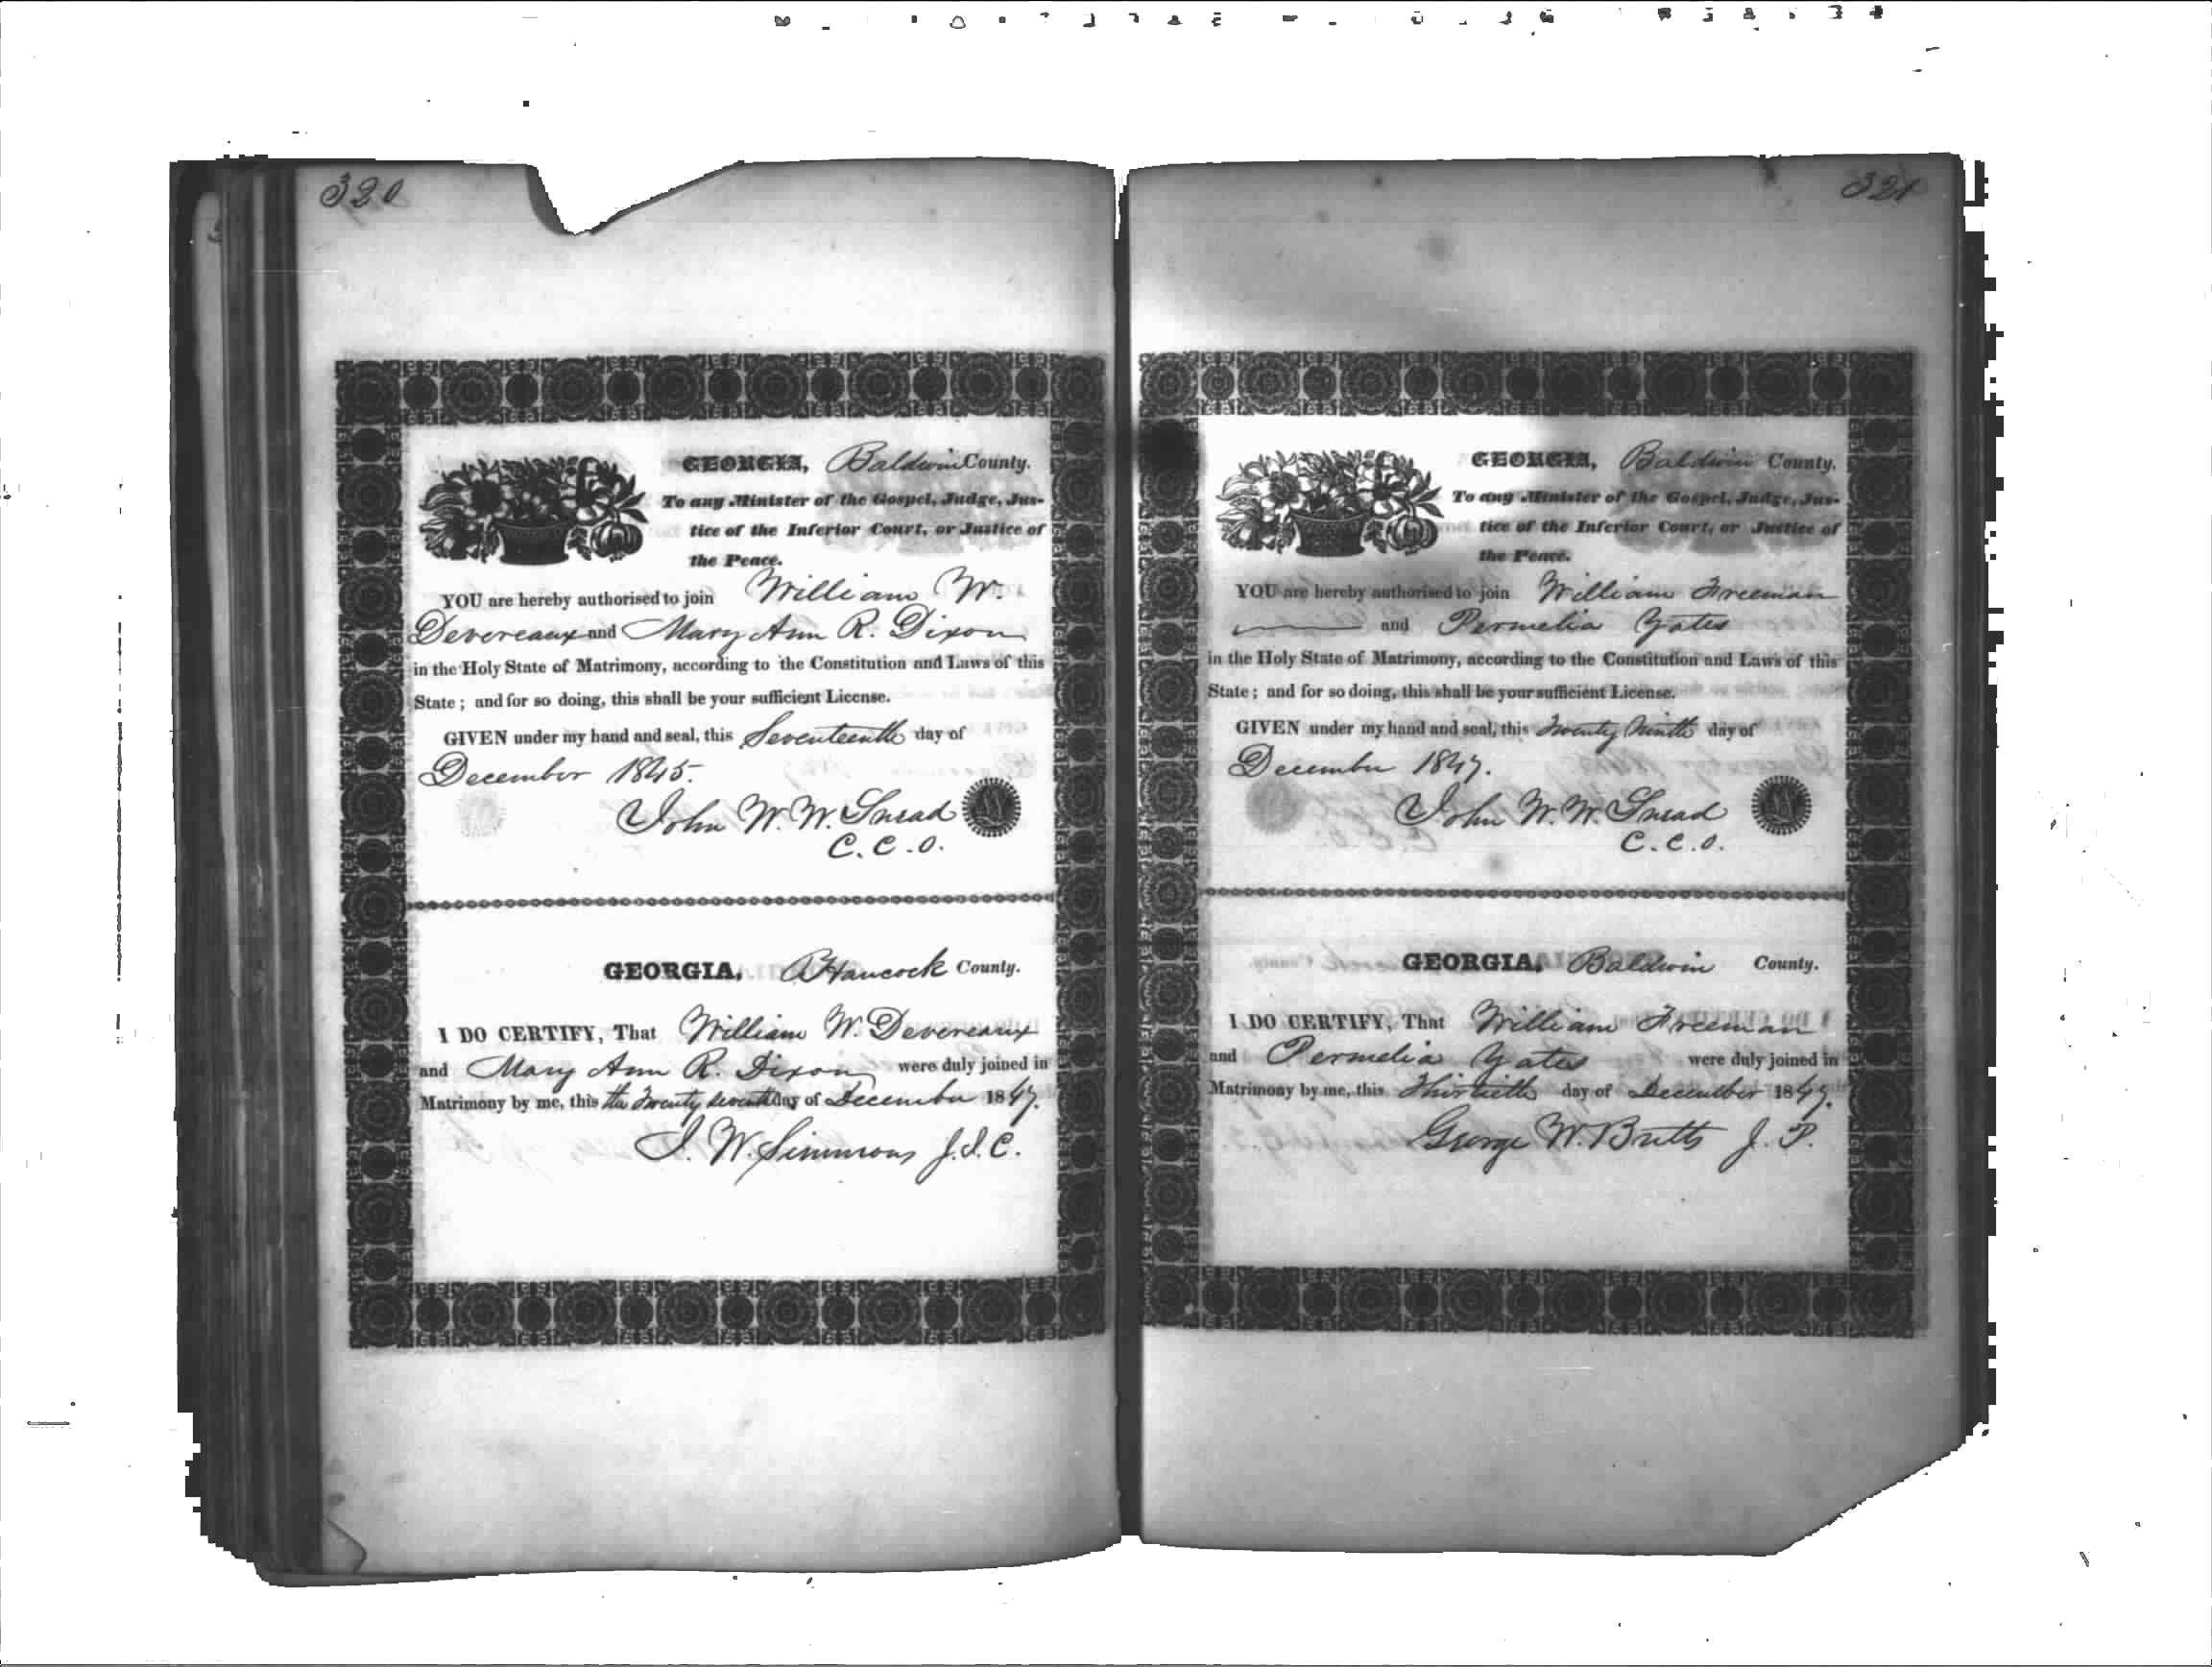 320
GEORGIA, Baldwin County.
To any Minister of the Gospel, Judge, Jus-
tice of the Inferior Court, or Justice of
the Peace.
YOU are hereby authorised to join William W.
Devereaux and Mary Ann R. Dixon
in the Holy State of Matrimony, according to the Constitution and Laws of this
State; and for so doing, this shall be your sufficient License.
GIVEN under my hand and seal, this Seventeenth day of
December 1845.
John W. W. Snead
C. C. O.
GEORGIA, Hancock County.
I DO CERTIFY, That William W. Devereaux
and Mary Ann R. Dixon were duly joined in
Matrimony by me, this the Twenty seventh day of December 1847.
W. Simmons J. I. C.
321
GEORGIA, Baldwin County.
To any Minister of the Gospel, Judge, Jus-
tice of the Inferior Court, or Justice of
the Peace.
YOU are hereby authorised to join William Freeman
and Permelia Yates
in the Holy State of Matrimony, according to the Constitution and Laws of this
State; and for so doing, this shall be your sufficient License.
GIVEN under my hand and seal, this Twenty Ninth day of
December 1847.
John W. W. Snead
C. C. O.
GEORGIA, Baldwin County.
I DO CERTIFY, That William Freeman
and Permelia Yates were duly joined in
Matrimony by me, this Thirtieth day of December 1847.
George W. Butts J. P.